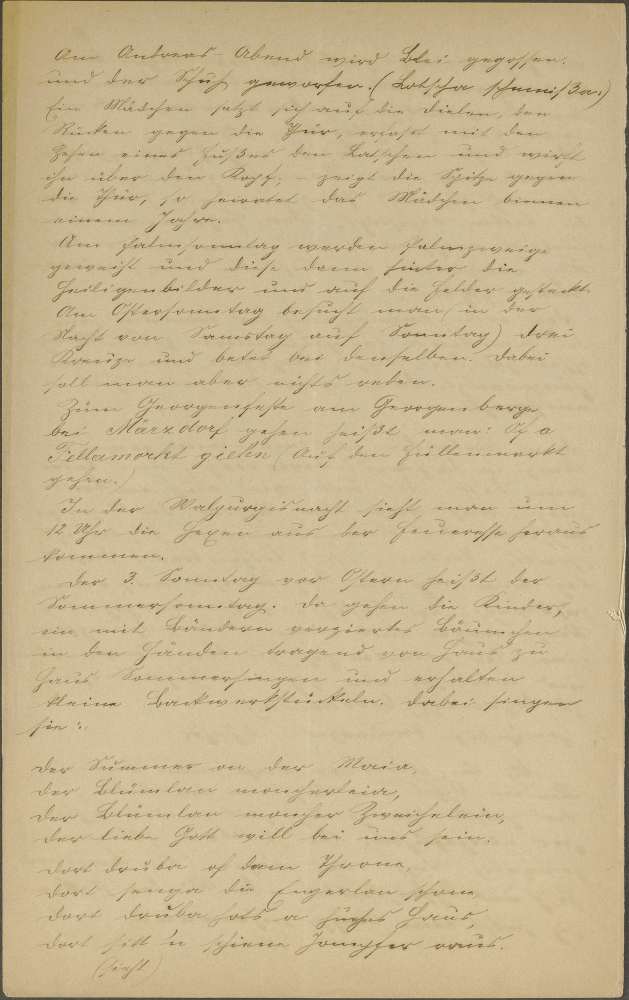 Am Andreas-Abend wird Blei gegossen.
und der Schuh geworfen. (Lotscha schmeißa.)
Ein Mädchen setzt sich auf die Dielen, den
Rücken gegen die Thür, erfaßt mit den
Zehen eines Fußes den Latschen und wirft
ihn über den Kopf; – zeigt die Spitze gegen
die Thür, so heiratet das Mädchen binnen
einem Jahre.
Am Palmsonntag werden Palmzweige
geweiht und diese dann hinter die
Heiligenbilder und auf die Felder gesteckt.
Am Ostersamstag besucht man, in der
Nacht von Samstag auf Sonntag) drei
Kreuze und betet bei denselben. Dabei
soll man aber nichts reden.
Zum Georgenfeste am Georgenberge
bei Märzdorf gehen heißt man: Of a
Fellamorkt giehn (Auf den Füllenmarkt
gehen.)
In der Walpurgisnacht sieht man um
12 Uhr die Hexen aus der Feueresse heraus
kommen.
Der 3. Sonntag vor Ostern heißt der
Sommersonntag. Da gehen die Kinder,
ein mit Bändern verziertes Bäumchen
in den Händen tragend von Haus zu
Haus Sommersingen und erhalten
kleine Backwerkstückeln. Dabei singen
sie:
Der Summer on der Maia,
der Blümlan moncherleia,
der Blümlan moncher Zweichelein,
der liebe Gott will bei uns sein.
Dort druba of dam Throne,
dort senga die Engerlan schone
dort druba hots a huches Haus,
dort sitt 'n schiene Jompfer raus.
(sieht)